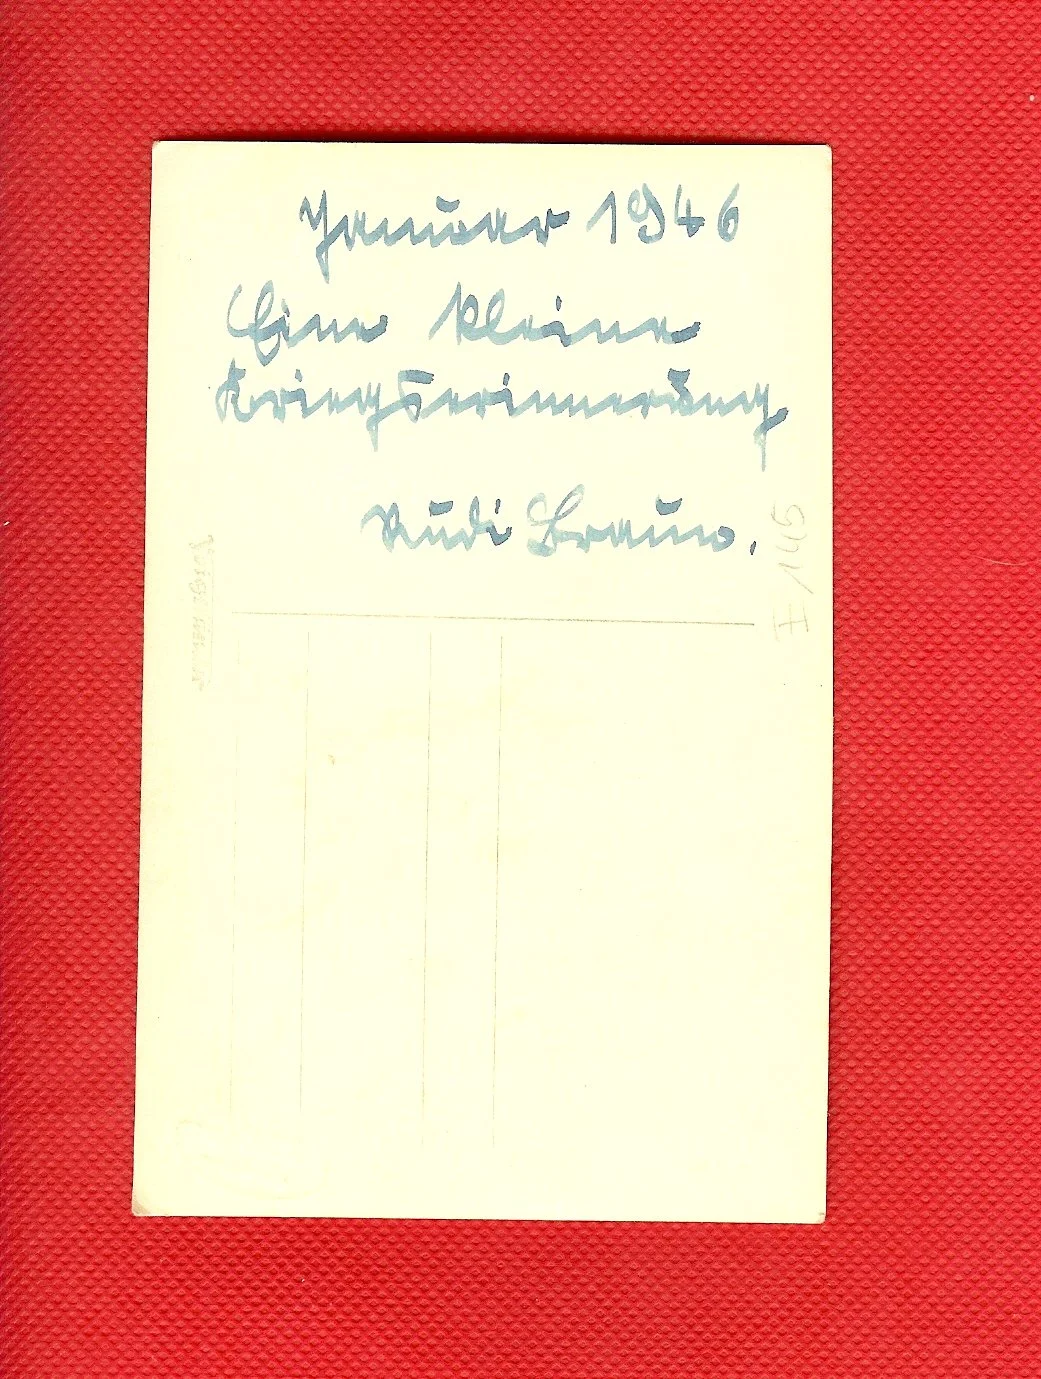 Januar 1946
Eine kleine
Kriegserinnerung
Rudi Braun.
I 145